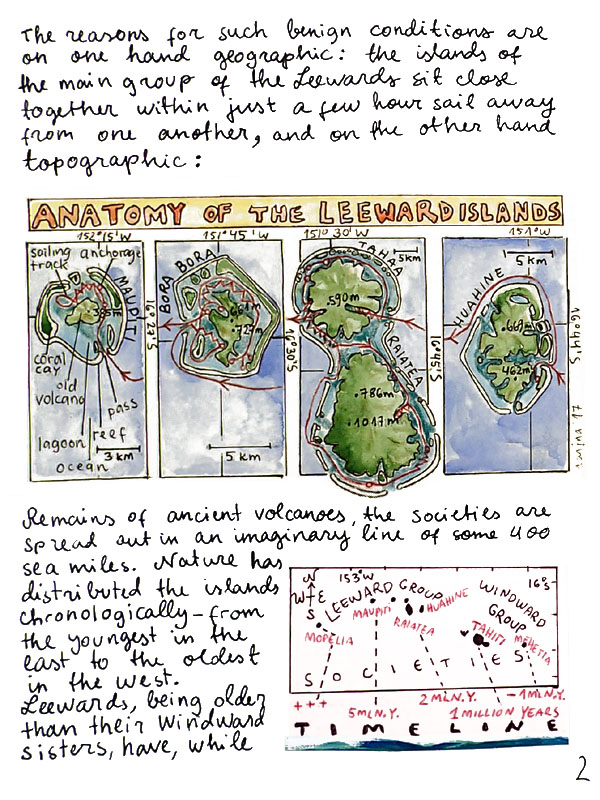 The reasons for such benign conditions are
on one hand geographic: the islands of
the main group of the Leewards sit close
together within just a few hour sail away
from one another, and on the other hand
topographic:
ANATOMY OF THE LEEWARD ISLANDS
152°15'W
151°45'W
151°30'W
151°W
sailing track
anchorage
MAUPITI
385m
coral cay
old volcano
lagoon
ocean
reef
pass
3 km
16°27'S
BORA BORA
661m
727m
5 km
16°30'S
TAHAA
5km
590m
RAIATEA
16°45'S
.786m
.1017m
5 km
HUAHINE
669m
462m
16°44'S
Remains of ancient volcanoes, the Societies are
spread out in an imaginary line of some 400
sea miles. Nature has
distributed the islands
chronologically – from
the youngest in the
east to the oldest
in the west.
Leewards, being older
than their Windward
sisters, have, while
N
W E
S
153°W
16°S
LEEWARD GROUP
WINDWARD GROUP
MOPELIA
MAUPITI
RAIATEA
HUAHINE
TAHITI
MEHETIA
SOCIETIES
+++
5MLN.Y.
2MLN.Y.
1MILLION YEARS
-1MLN.Y.
TIMELINE
2